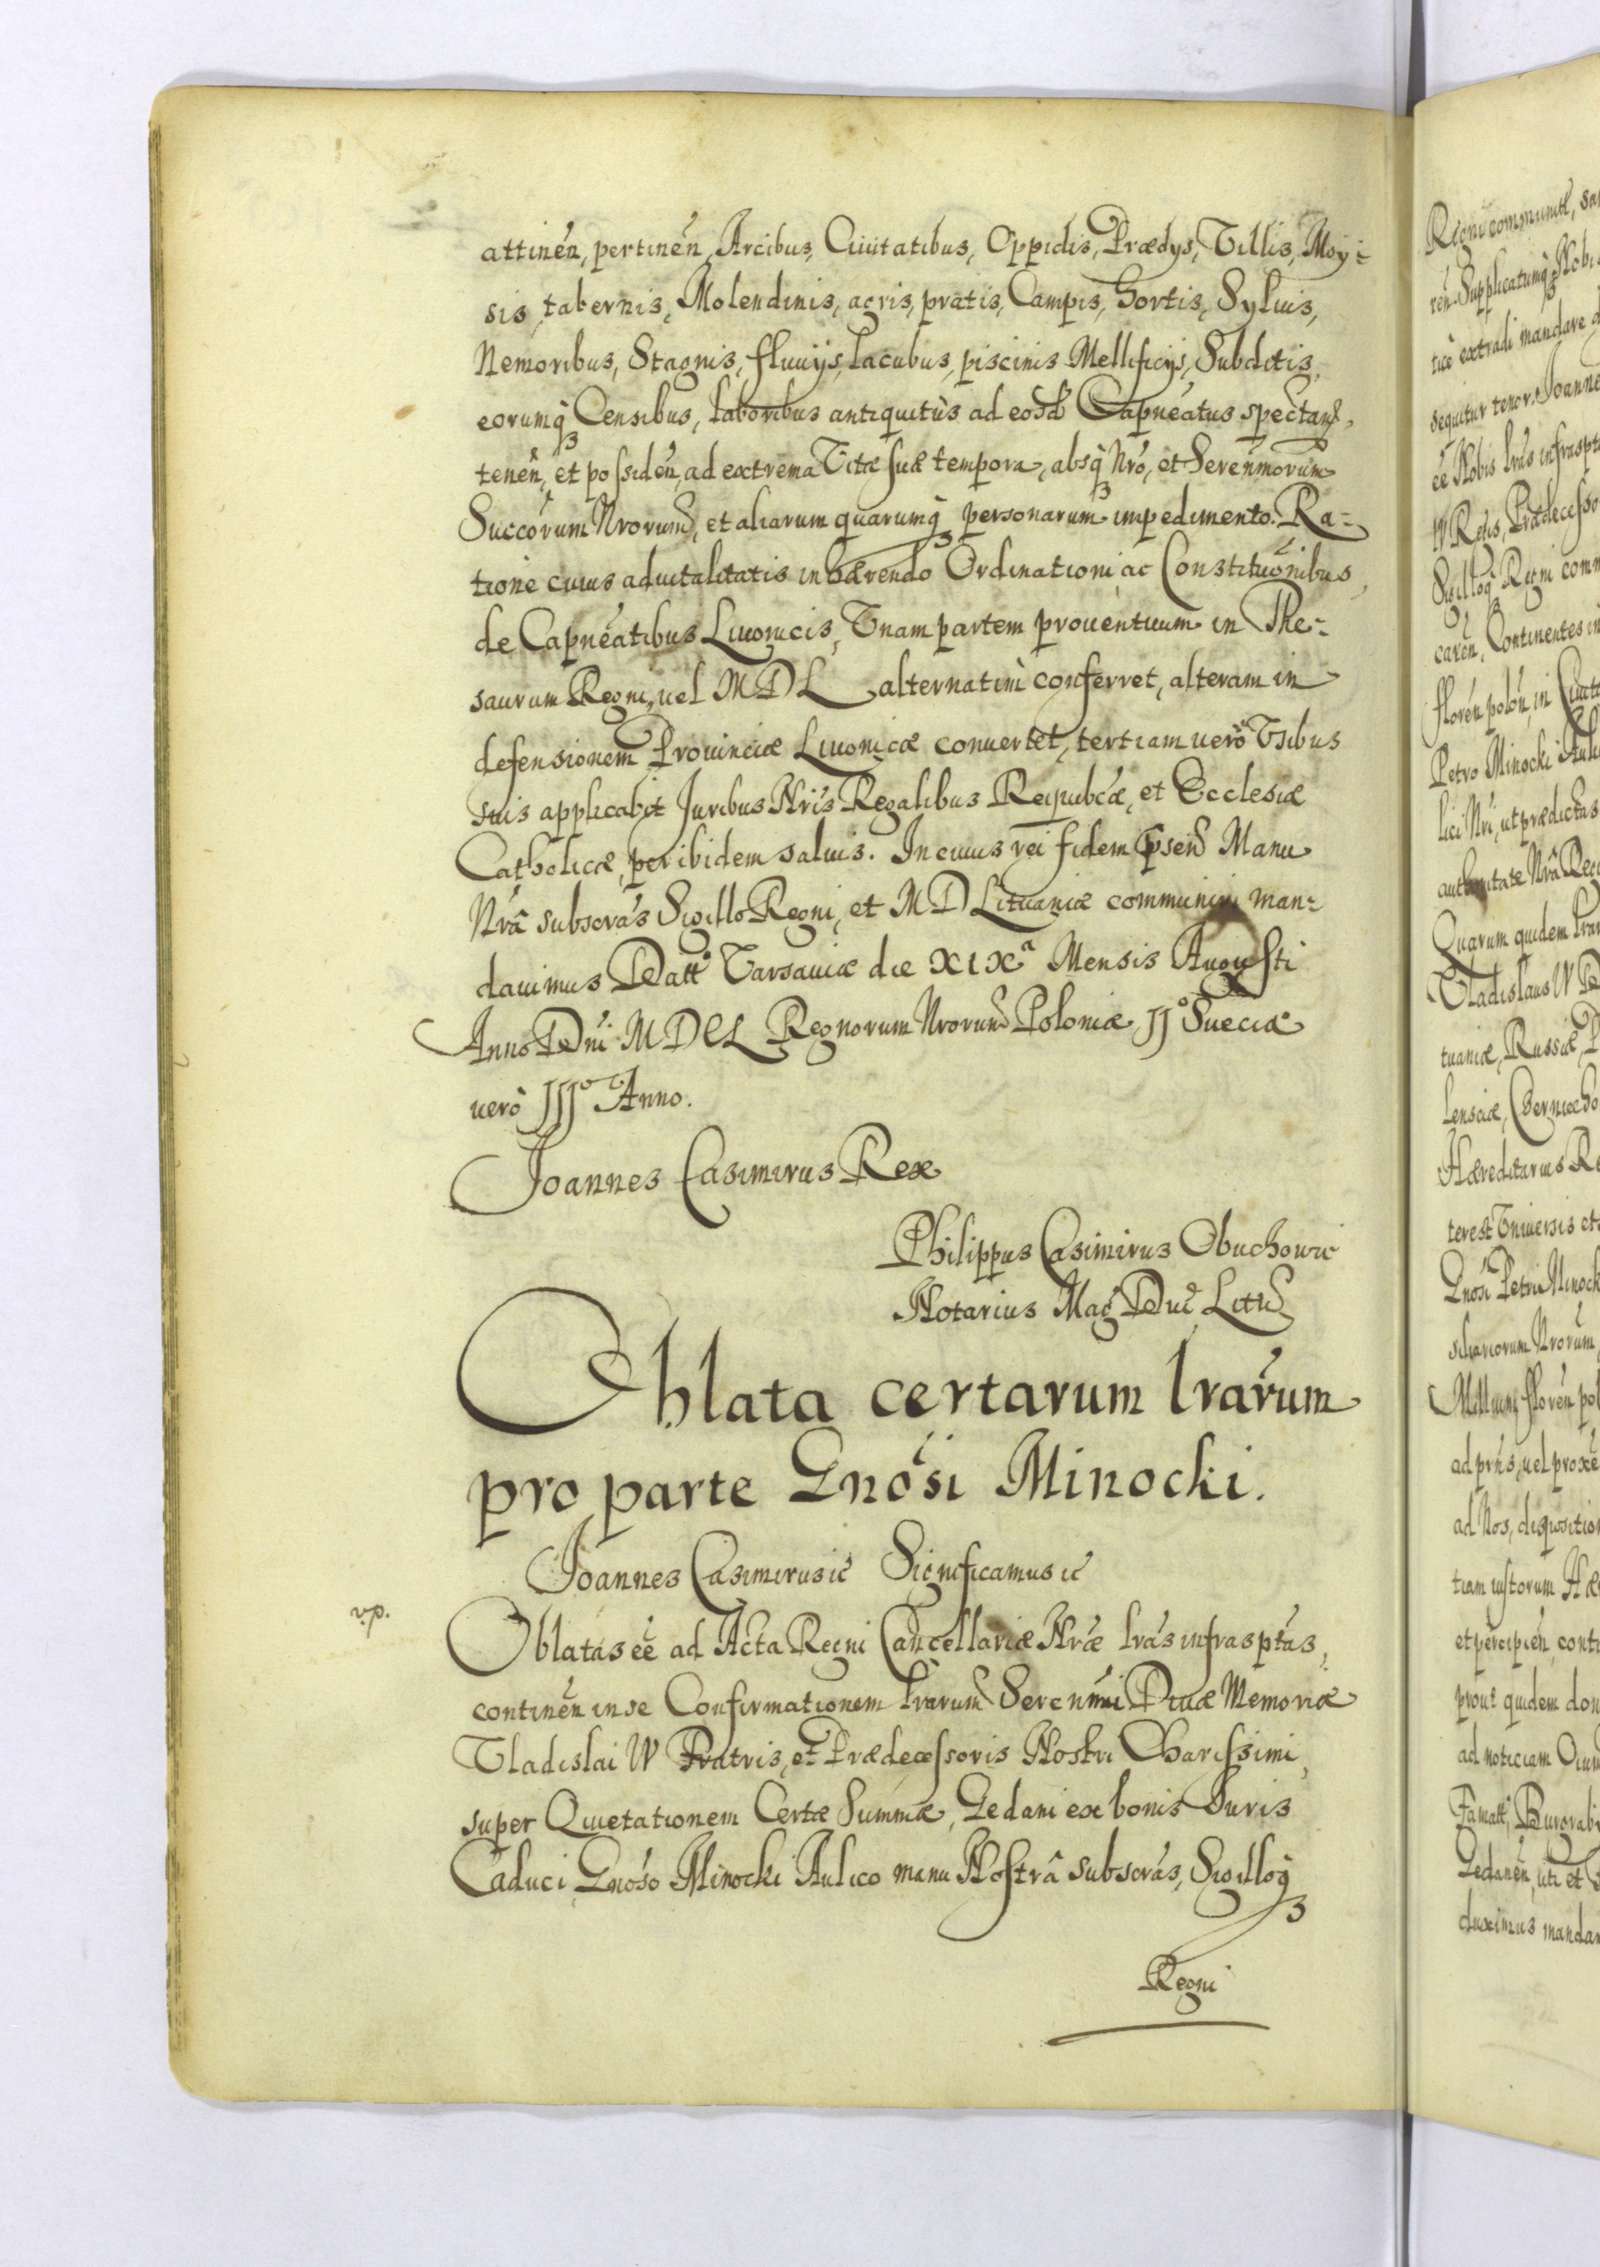 attinen, pertinen, Arcibus, Ciuitatibus, Oppidis, Prædys, Villis, Moy-
sis, tabernis, Molendinis, agris, pratis, Campis, hortis, Syluis,
Nemoribus, Stagnis, fluuijs, lacubus, piscinis Mellificijs, Subditis,
eorumq3 Censibus, laboribus antiquitùs ad eosd Capneatus spectan,
tenen, et possiden, ad extrema Vitæ suæ tempora, absq3 Nro, et Serenmorum
Succorum Nrorum, et aliarum quarumq3 personarum impedimento. Ra-
tione cuius aduitalitatis inhærendo Ordinationi ac Constituonibus
de Capneatibus Liuonicis, Vnam partem prouentuum in The-
saurum Regni, uel M D L alternatim conferret, alteram in
defensionem Prouinciæ Liuonicæ conuertet, tertiam uerò Vsibus
suis applicabit Juribus Nris Regalibus Reipubcæ, et Ecclesiæ
Catholicæ, per ibidem saluis. In cuius rei fidem psen Manu
Nrâ subscras Sigillo Regni, et M D Lituaniæ communiri man-
dauimus Datt Varsauiæ die XIXa Mensis Augusti
Anno Dni MDCL Regnorum Nrorum Poloniæ IIo Sueciæ
uerò IIIo Anno.
Joannes Casimirus Rex
Philippus Casimirus Obuchowic
Notarius Mag Duc Litu
Oblata certarum lrarum
pro parte Gnosi Minocki.
Joannes Casimirus ic Significamus ic
v.p.
Oblatas eê ad Acta Regni Cancellariæ Nræ lras infrasptas,
continen in se Confirmationem lrarum Serenmi Diuæ Memoriæ
Vladislai IV Fratris, et Prædecessoris Nostri Charissimi,
super Quietationem Certæ Summæ, Gedani ex bonis Juris
Caduci Gnoso Minocki Aulico manu Nostrâ subscras, Sigilloq3
Regni
Regni communit,
ren. Supplicatumq3 Nobis
ticè extradi mandare
sequitur tenor. Joannes
eê Nobis lras infraspt
IV Regis, Prædecesso
Sigilloq3 Regni comm
caren, Continentes in
floren polon, in Ciuit
Petro Minocki Auli
lici Nri, ut prædictas
authoritate Nrâ Reg
Quarum quidem lrar
Vladislaus IV D
tuaniæ, Russiæ, P
lensciæ, Czerniecho
Hæreditarius Re
terest Vniuersis et
Gnosi Petri Minock
siliariorum Nrorum
Millium floren pol
ad prns, uel proxe
ad Nos, disposition
tiam iustorum Hæ
et percipien, cont
prout quidem don
ad noticiam Oium
Famatt, Burgrabi
Gedanen, uti et
duximus mandan